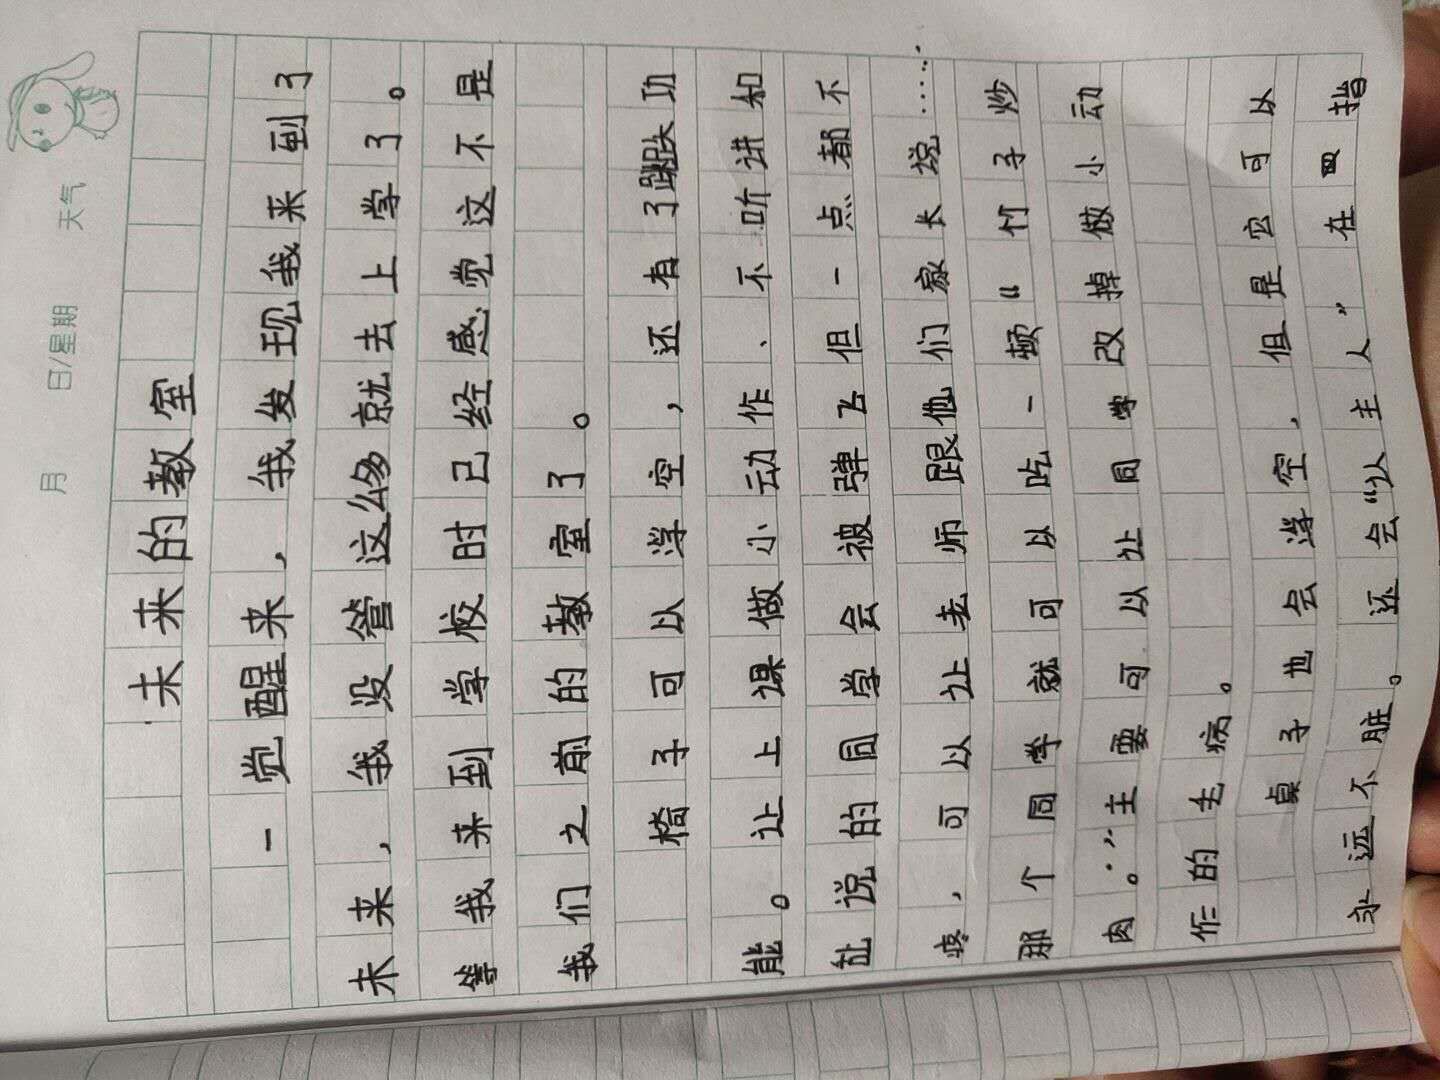 月 日/星期 天气
未来的教室
一觉醒来，我发现我来到了
未来，我没管这么多就去上学了。
等我来到学校时已经感觉这不是
我们之前的教室了。
椅子可以浮空，还有了跳跃功
能。让上课做小动作、不听讲和
扯说的同学会被弹飞但一点都不
疼，可以让老师跟他们家长说……
那个同学就可以吃一顿“竹子炒
肉。”主要可以让同学改掉做小动
作的毛病。
桌子也会浮空，但是它可以
永远不脏。还会“认主人”在四指